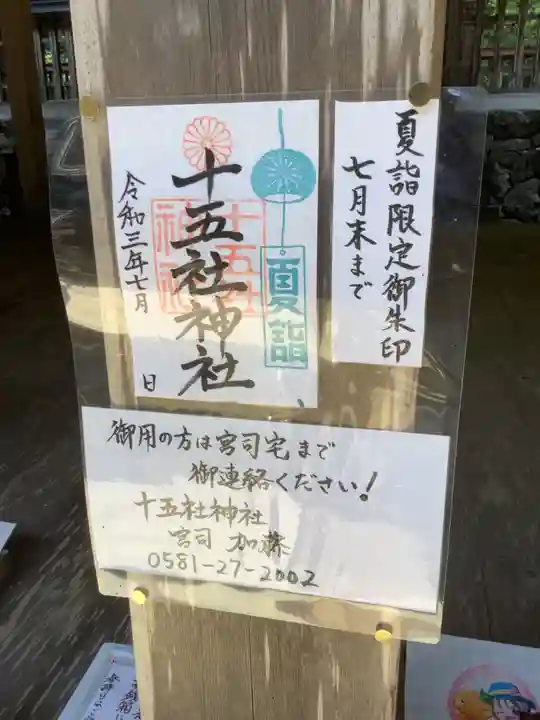 夏詣限定御朱印
七月末まで
夏詣
十五社神社
十五社
神社
令和三年七月 日
御用の方は宮司宅まで
御連絡ください！
十五社神社
宮司 加藤
0581-27-2002